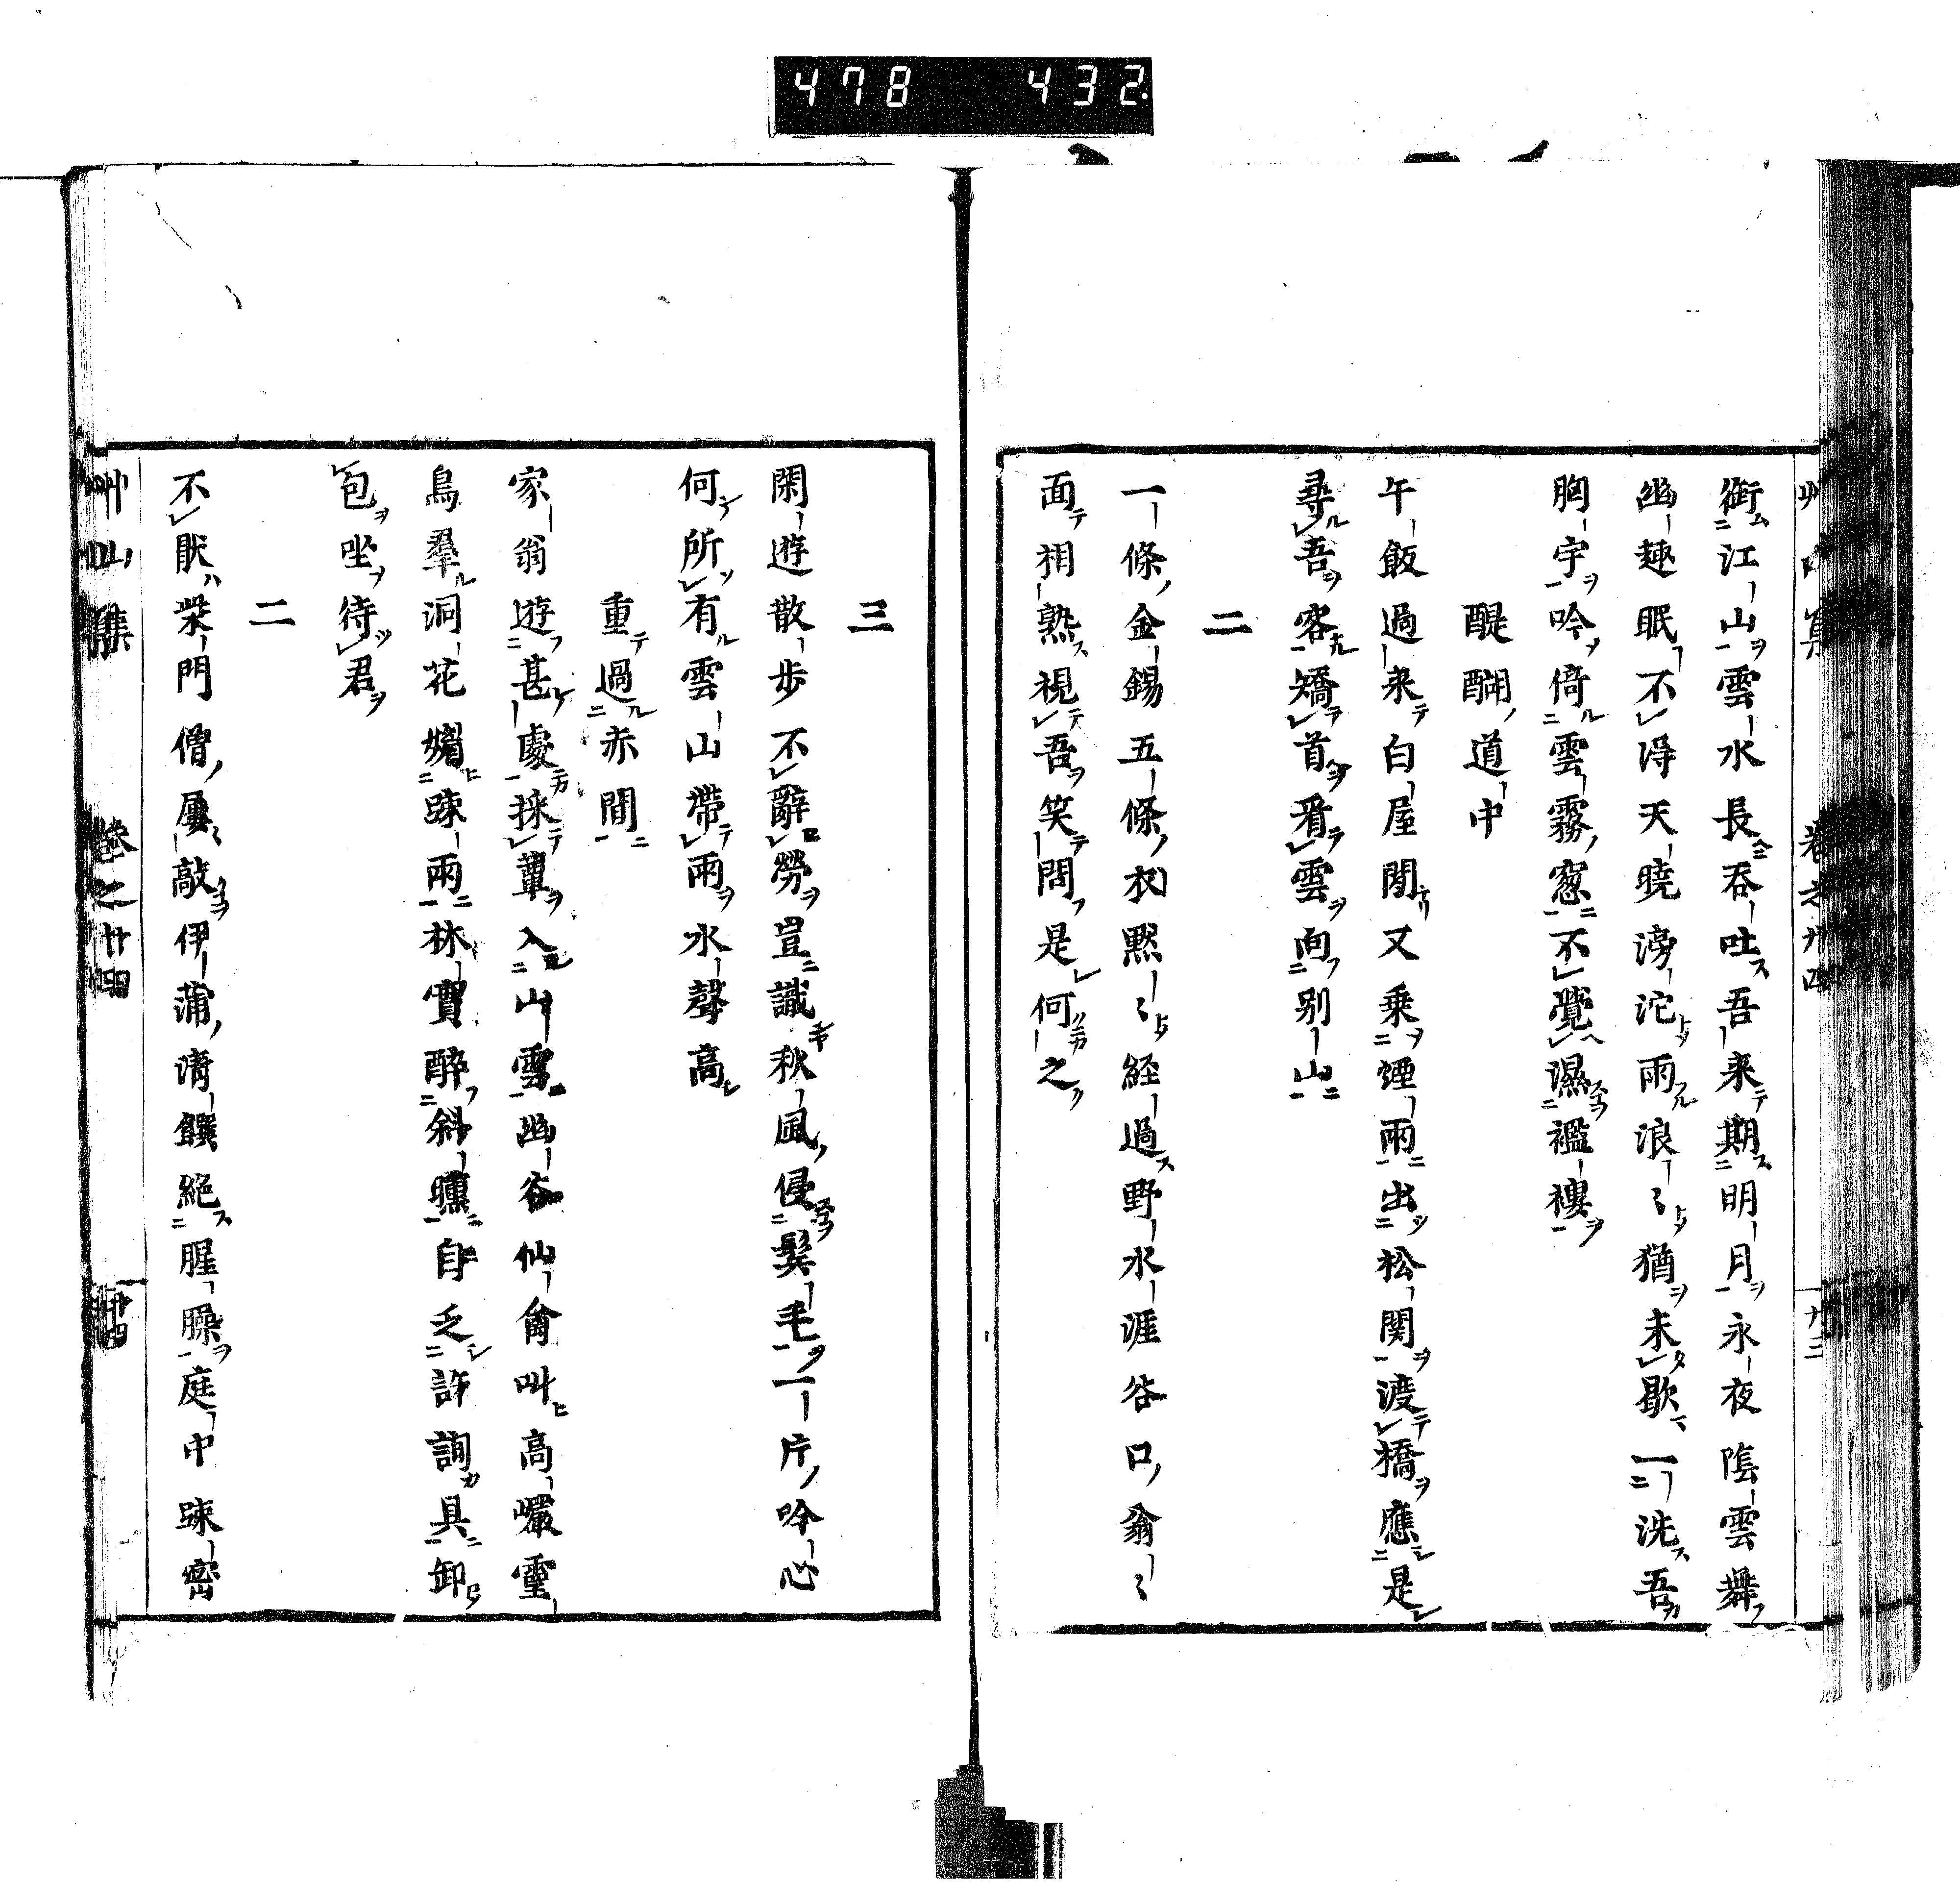 478 432
銜江山雲水長吞吐吾来期明月永夜陰雲舞
幽趣眠不得天曉滂沱雨浪〻猶未歇一洗吾
胸宇吟倚雲霧窓不覺濕襤褸
醍醐道中
午飯過来白屋間又乗煙雨出松関渡橋應是
尋吾客矯首看雲向別山
二
一條金錫五條衣黙〻経過野水涯谷口翁〻
面相熟視吾笑問是何之
三
閑遊散歩不辭勞豈識秋風侵鬓毛一片吟心
何所有雲山帶雨水聲高
重過赤間
家翁遊甚處採蕈入山雲幽谷仙禽叫高巖靈
鳥羣洞花媚疎雨林實醉斜曛自乏許詢具卸
包坐待君
二
不厭柴門僧屢敲伊蒲清饌絶腥臊庭中疎密
艸山集 卷之廿四 廿四